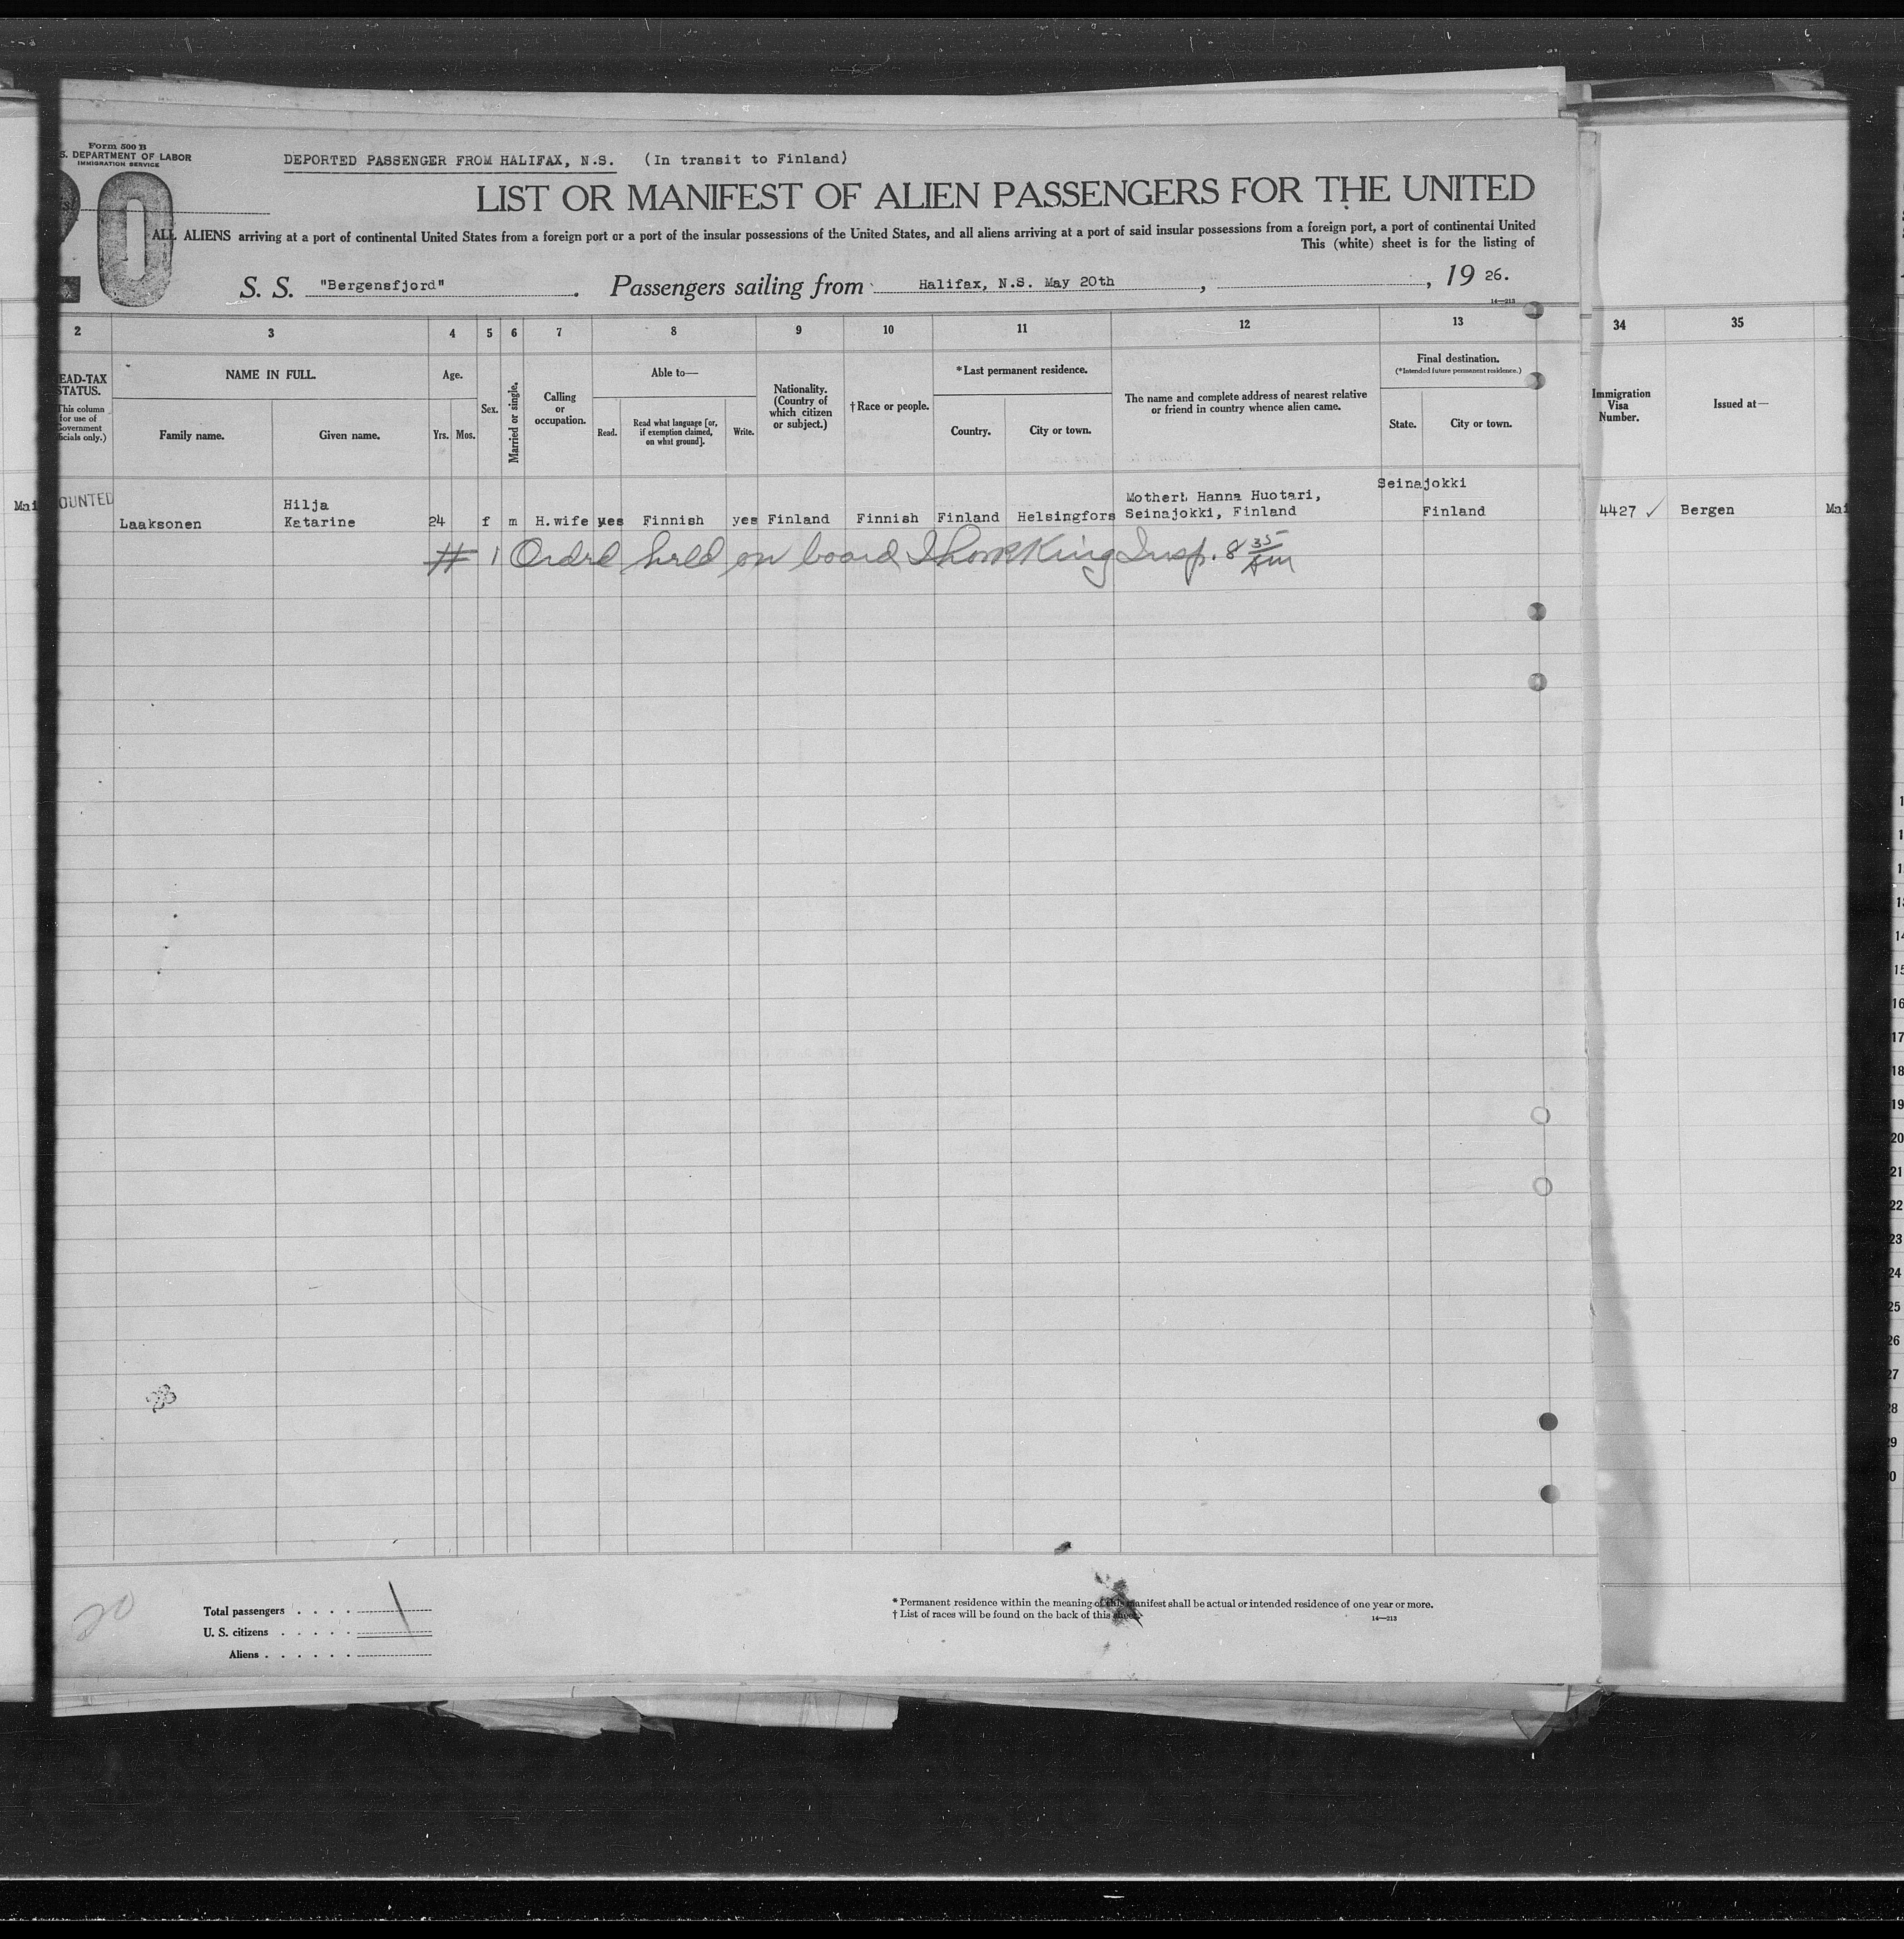 Form 500 B
S. DEPARTMENT OF LABOR
IMMIGRATION SERVICE
20
DEPORTED PASSENGER FROM HALIFAX, N.S. (In transit to Finland)
LIST OR MANIFEST OF ALIEN PASSENGERS FOR THE UNITED
ALL ALIENS arriving at a port of continental United States from a foreign port or a port of the insular possessions of the United States, and all aliens arriving at a port of said insular possessions from a foreign port, a port of continental United
This (white) sheet is for the listing of
S. S. "Bergensfjord". Passengers sailing from Halifax, N.S. May 20th, , 19 26.
14—213
2 3 4 5 6 7 8 9 10 11 12 13 34 35
EAD-TAX STATUS.
This column for use of Government ficials only.)
NAME IN FULL.
Family name. Given name.
Age.
Yrs. Mos.
Sex.
Married or single.
Calling or occupation.
Able to—
Read. Read what language [or, if exemption claimed, on what ground]. Write.
Nationality. (Country of which citizen or subject.)
†Race or people.
*Last permanent residence.
Country. City or town.
The name and complete address of nearest relative or friend in country whence alien came.
Final destination.
(*Intended future permanent residence.)
State. City or town.
Immigration Visa Number.
Issued at—
Mai
OUNTED
Laaksonen Hilja Katarine 24 f m H.wife yes Finnish yes Finland Finnish Finland Helsingfors Mother: Hanna Huotari, Seinajokki, Finland Seinajokki Finland 4427 ✓ Bergen Mai
# 1 Ordrd held on board King Insp. 8 35 Am
14
15
16
17
18
19
20
21
22
23
24
25
26
27
28
29
20
Total passengers . . . . 1
U. S. citizens . . . . .
Aliens . . . . . .
* Permanent residence within the meaning of this manifest shall be actual or intended residence of one year or more.
† List of races will be found on the back of this sheet.
14—213